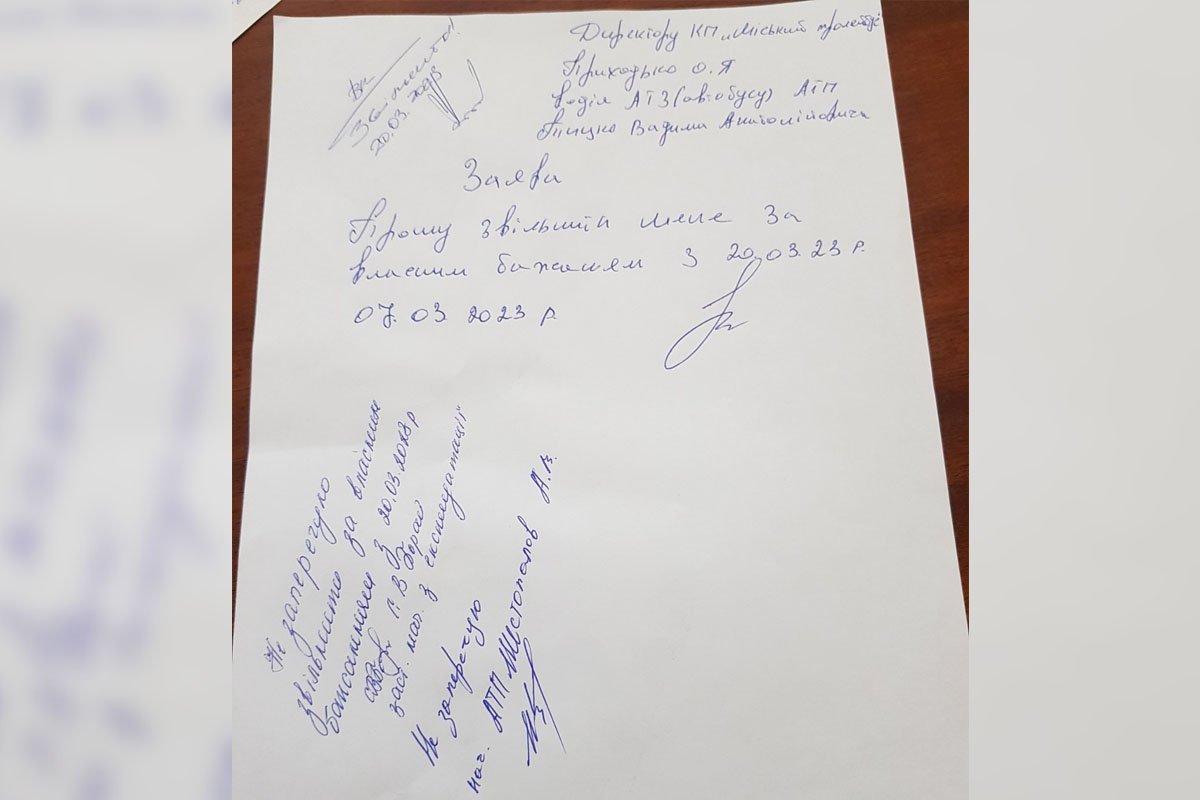 Вк
Звільнити!
20.03.2023
Директору КП "Міський тролейбус
Приходько О.Я
водія АТЗ(автобусу) АТП
Вадима Анатолійовича
Заява
Прошу звільнити мене за
власним бажанням з 20.03.23 р.
07.03.2023 р.
Не заперечую
звільнити за власним
бажанням з 20.03.2023 р
Г.В
заст. нач. з експлуатації
Не заперечую
нач. АТП Шестопалов А.В.